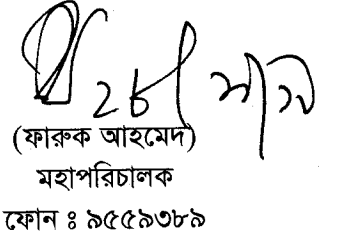 (ফারুক আহমেদ)
মহাপরিচালক
ফোন ঃ ৯৫৫৯৩৮৯